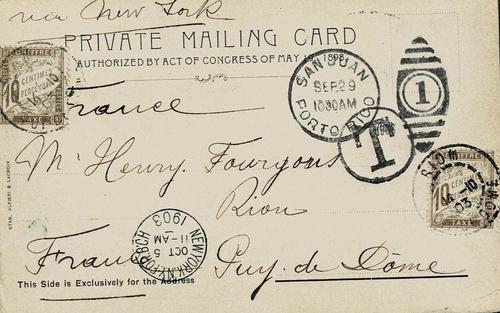 via New York
PRIVATE MAILING CARD
AUTHORIZED BY ACT OF CONGRESS OF MAY 19, 1898
SAN JUAN
SEP 29
1030AM
PORTO RICO
1
T
France
CHIFFRE
10 CENTIMES
A PERCEVOIR
TAXE
Mr Henry Fourgous
Riom
France Puy-de-Dôme
NEW YORK, N.Y.
OCT 5
11-AM
1903
10
TAXE
This Side is Exclusively for the Address